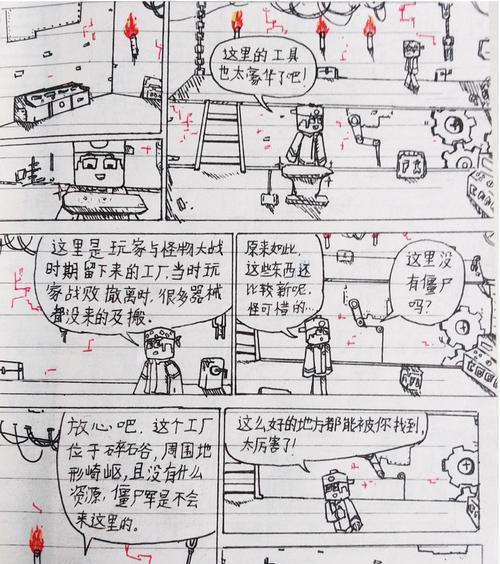 这里的工具
也太豪华了吧！
哇
这里是玩家与怪物大战
时期留下来的工厂，当时玩
家战败撤离时，很多器械
都没来的及搬．
原来如此，
这些东西还
比较新呢，
怪可惜的…
这里没
有僵尸
吗？
放心吧，这个工厂
位于碎石谷，周围地
形崎岖，且没有什么
资源，僵尸军是不会
来这里的．
这么好的地方都能被你找到，
太厉害了！